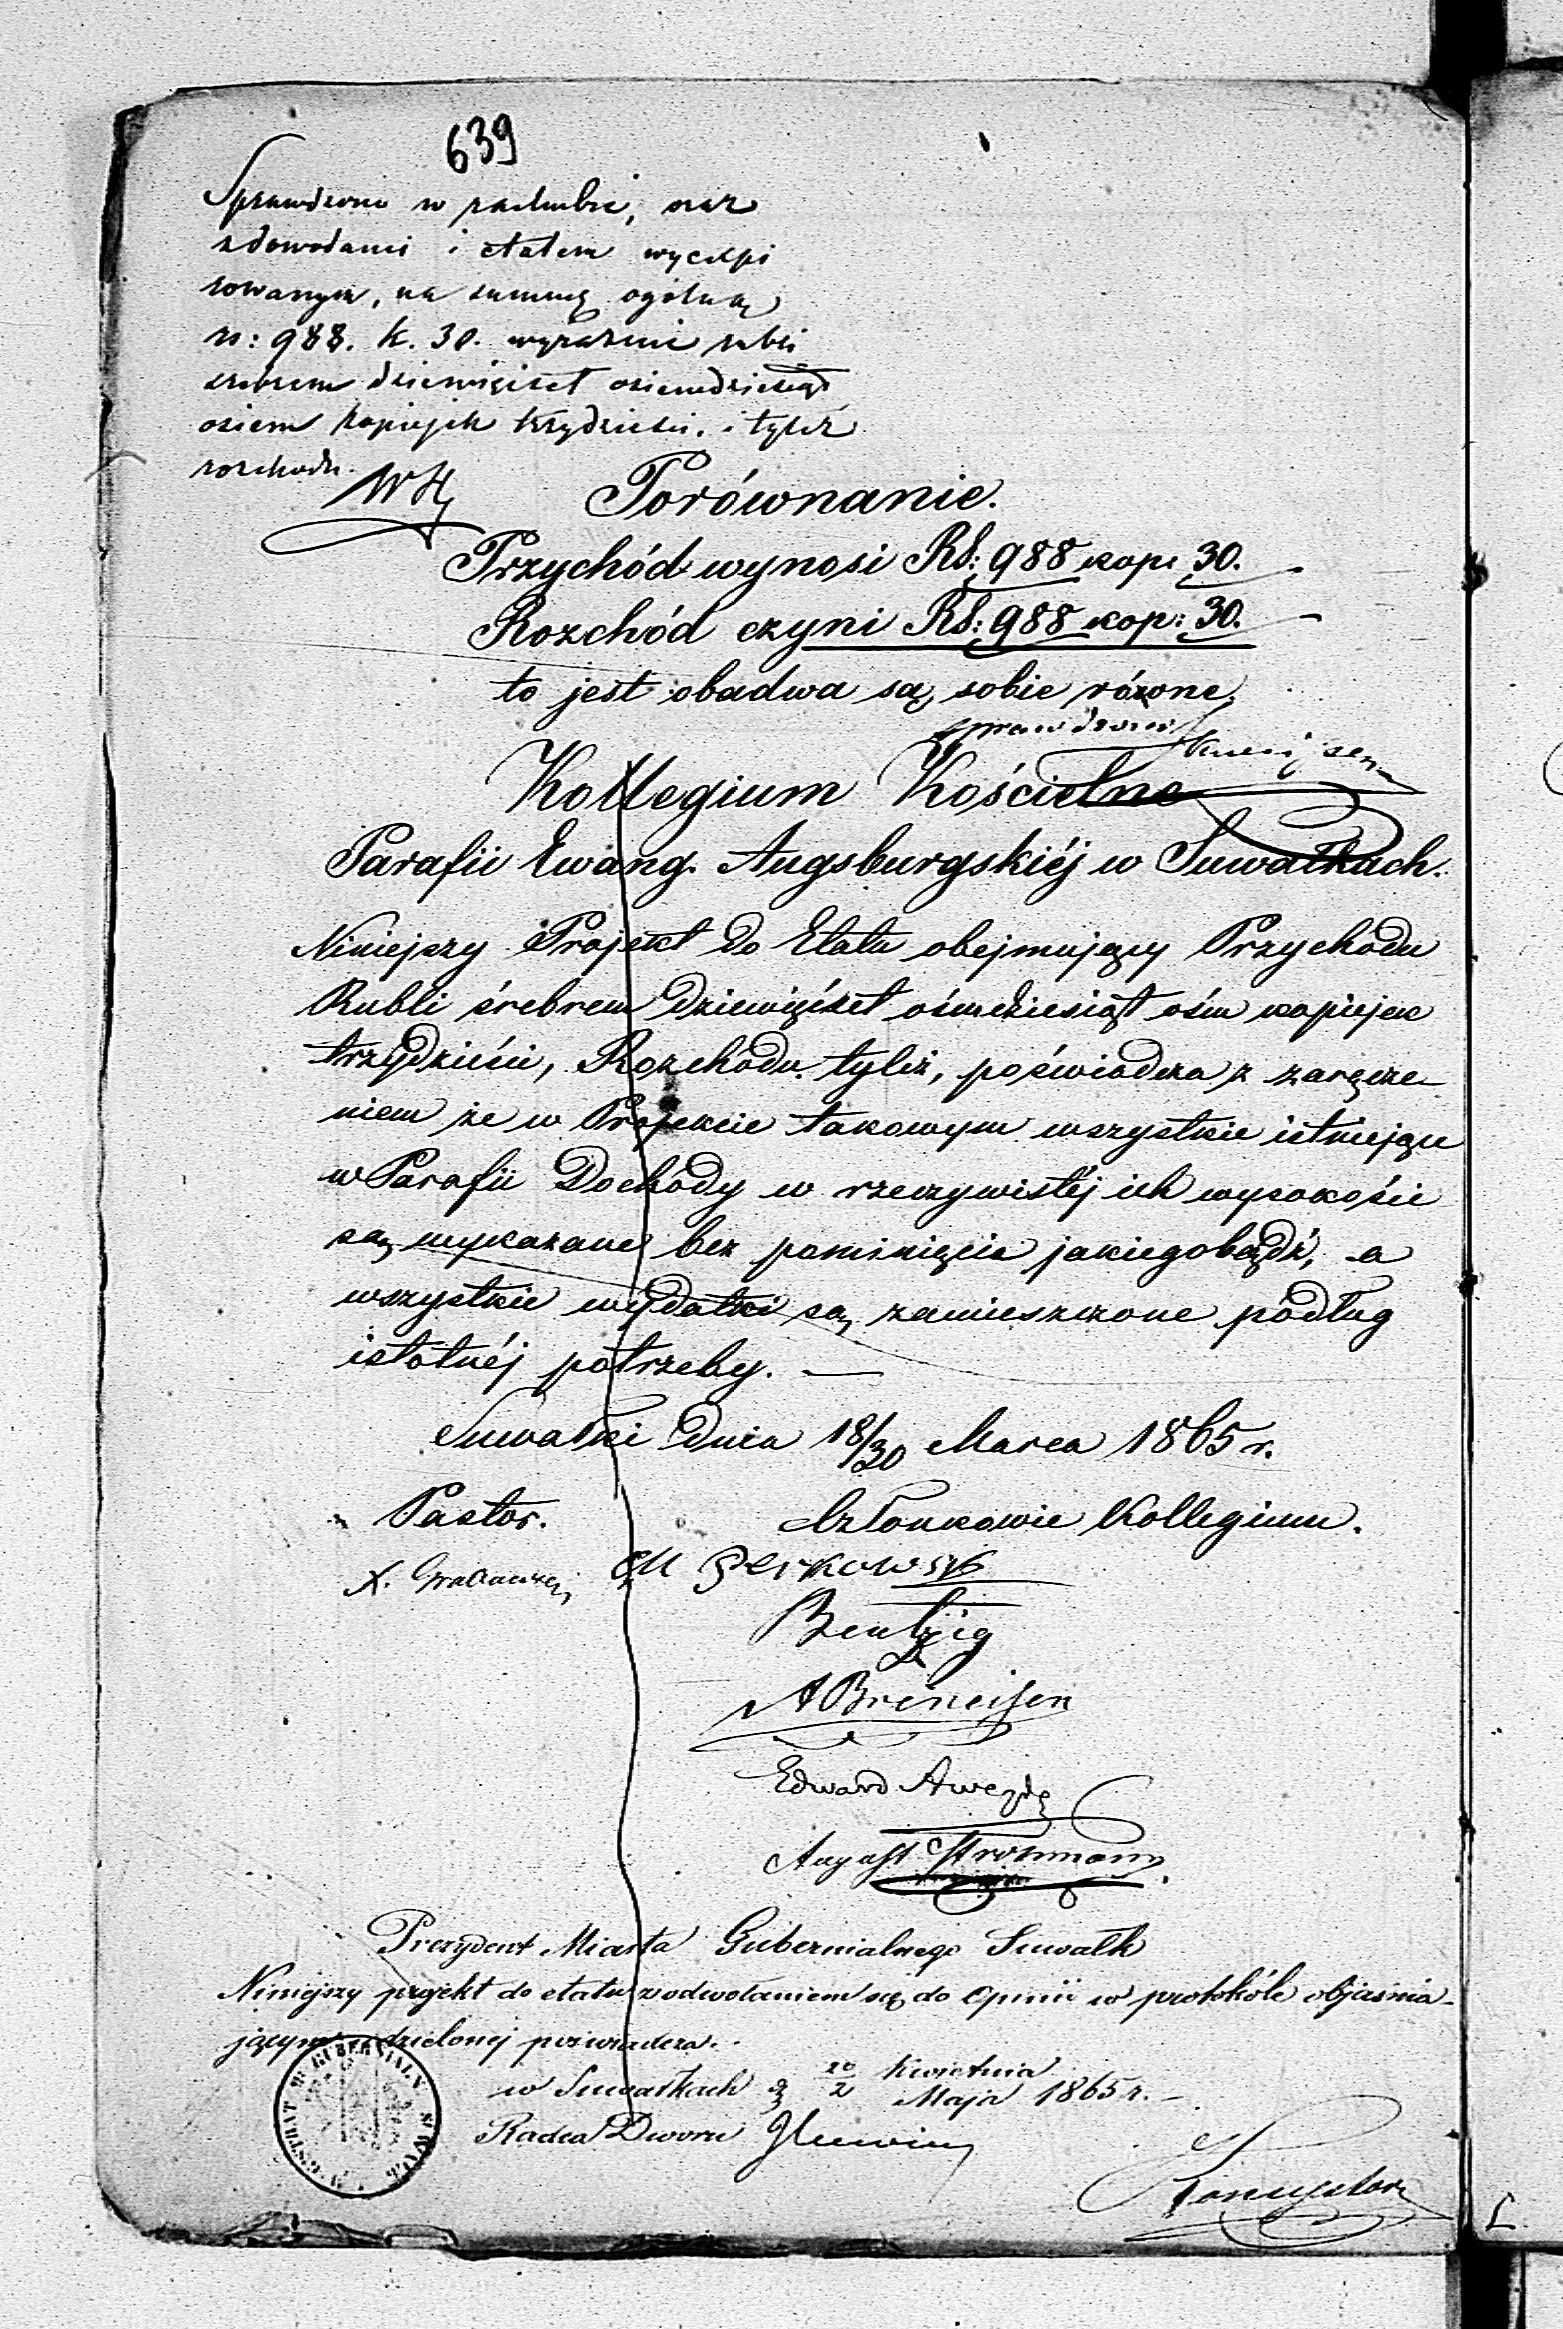 639
Sprawdzono w rachubie, oraz
z dowodami i etatem wyexpi
rowanym, na summę ogólną
rs: 988. k. 30. wyraźnie rubli
srebrem dziewięćset osiemdziesiąt
osiem kopiejek trzydzieści. i tyleż
rozchodu.
Porównanie.
Przychód wynosi RS: 988 kop: 30.
Rozchód czyni RS: 988 kop: 30.
to jest obadwa są sobie równe.
Sprawdzono
Kollegium Kościelne
Parafii Ewang. Augsburgskiéj w Suwałkach.
Niniejszy Projekt do Etatu obejmujący Przychodu
Rubli śrebrem Dziewięćset ośmdziesiąt ośm kopiejek
trzydzieści, Rozchodu tyleż, poświadcza z zaręcze-
niem że w Projekcie takowym wszystkie istniejące
w Parafii Dochody w rzeczywistéj ich wysokoście
są wykazane bez pominięcia jakiegobądź, a
wszystkie wydatki są zamieszczone podług
istotnéj potrzeby. —
Suwałki Dnia 18/30 Marca 1865 r.
Pastor. Członkowie Kollegium.
X.
Bentzig
A Breneisen
Edward
August Strohmann
Prezydent Miasta Gubernialnego Suwałk
Niniejszy projekt do etatu z odwołaniem się do opinii w protokóle objaśnia-
jącym udzielonej poświadcza.
w Suwałkach d 20/2 Kwietnia/Maja 1865 r.
Radca Dworu
MAGISTRAT M. GUBERNIALN. SUWAŁK